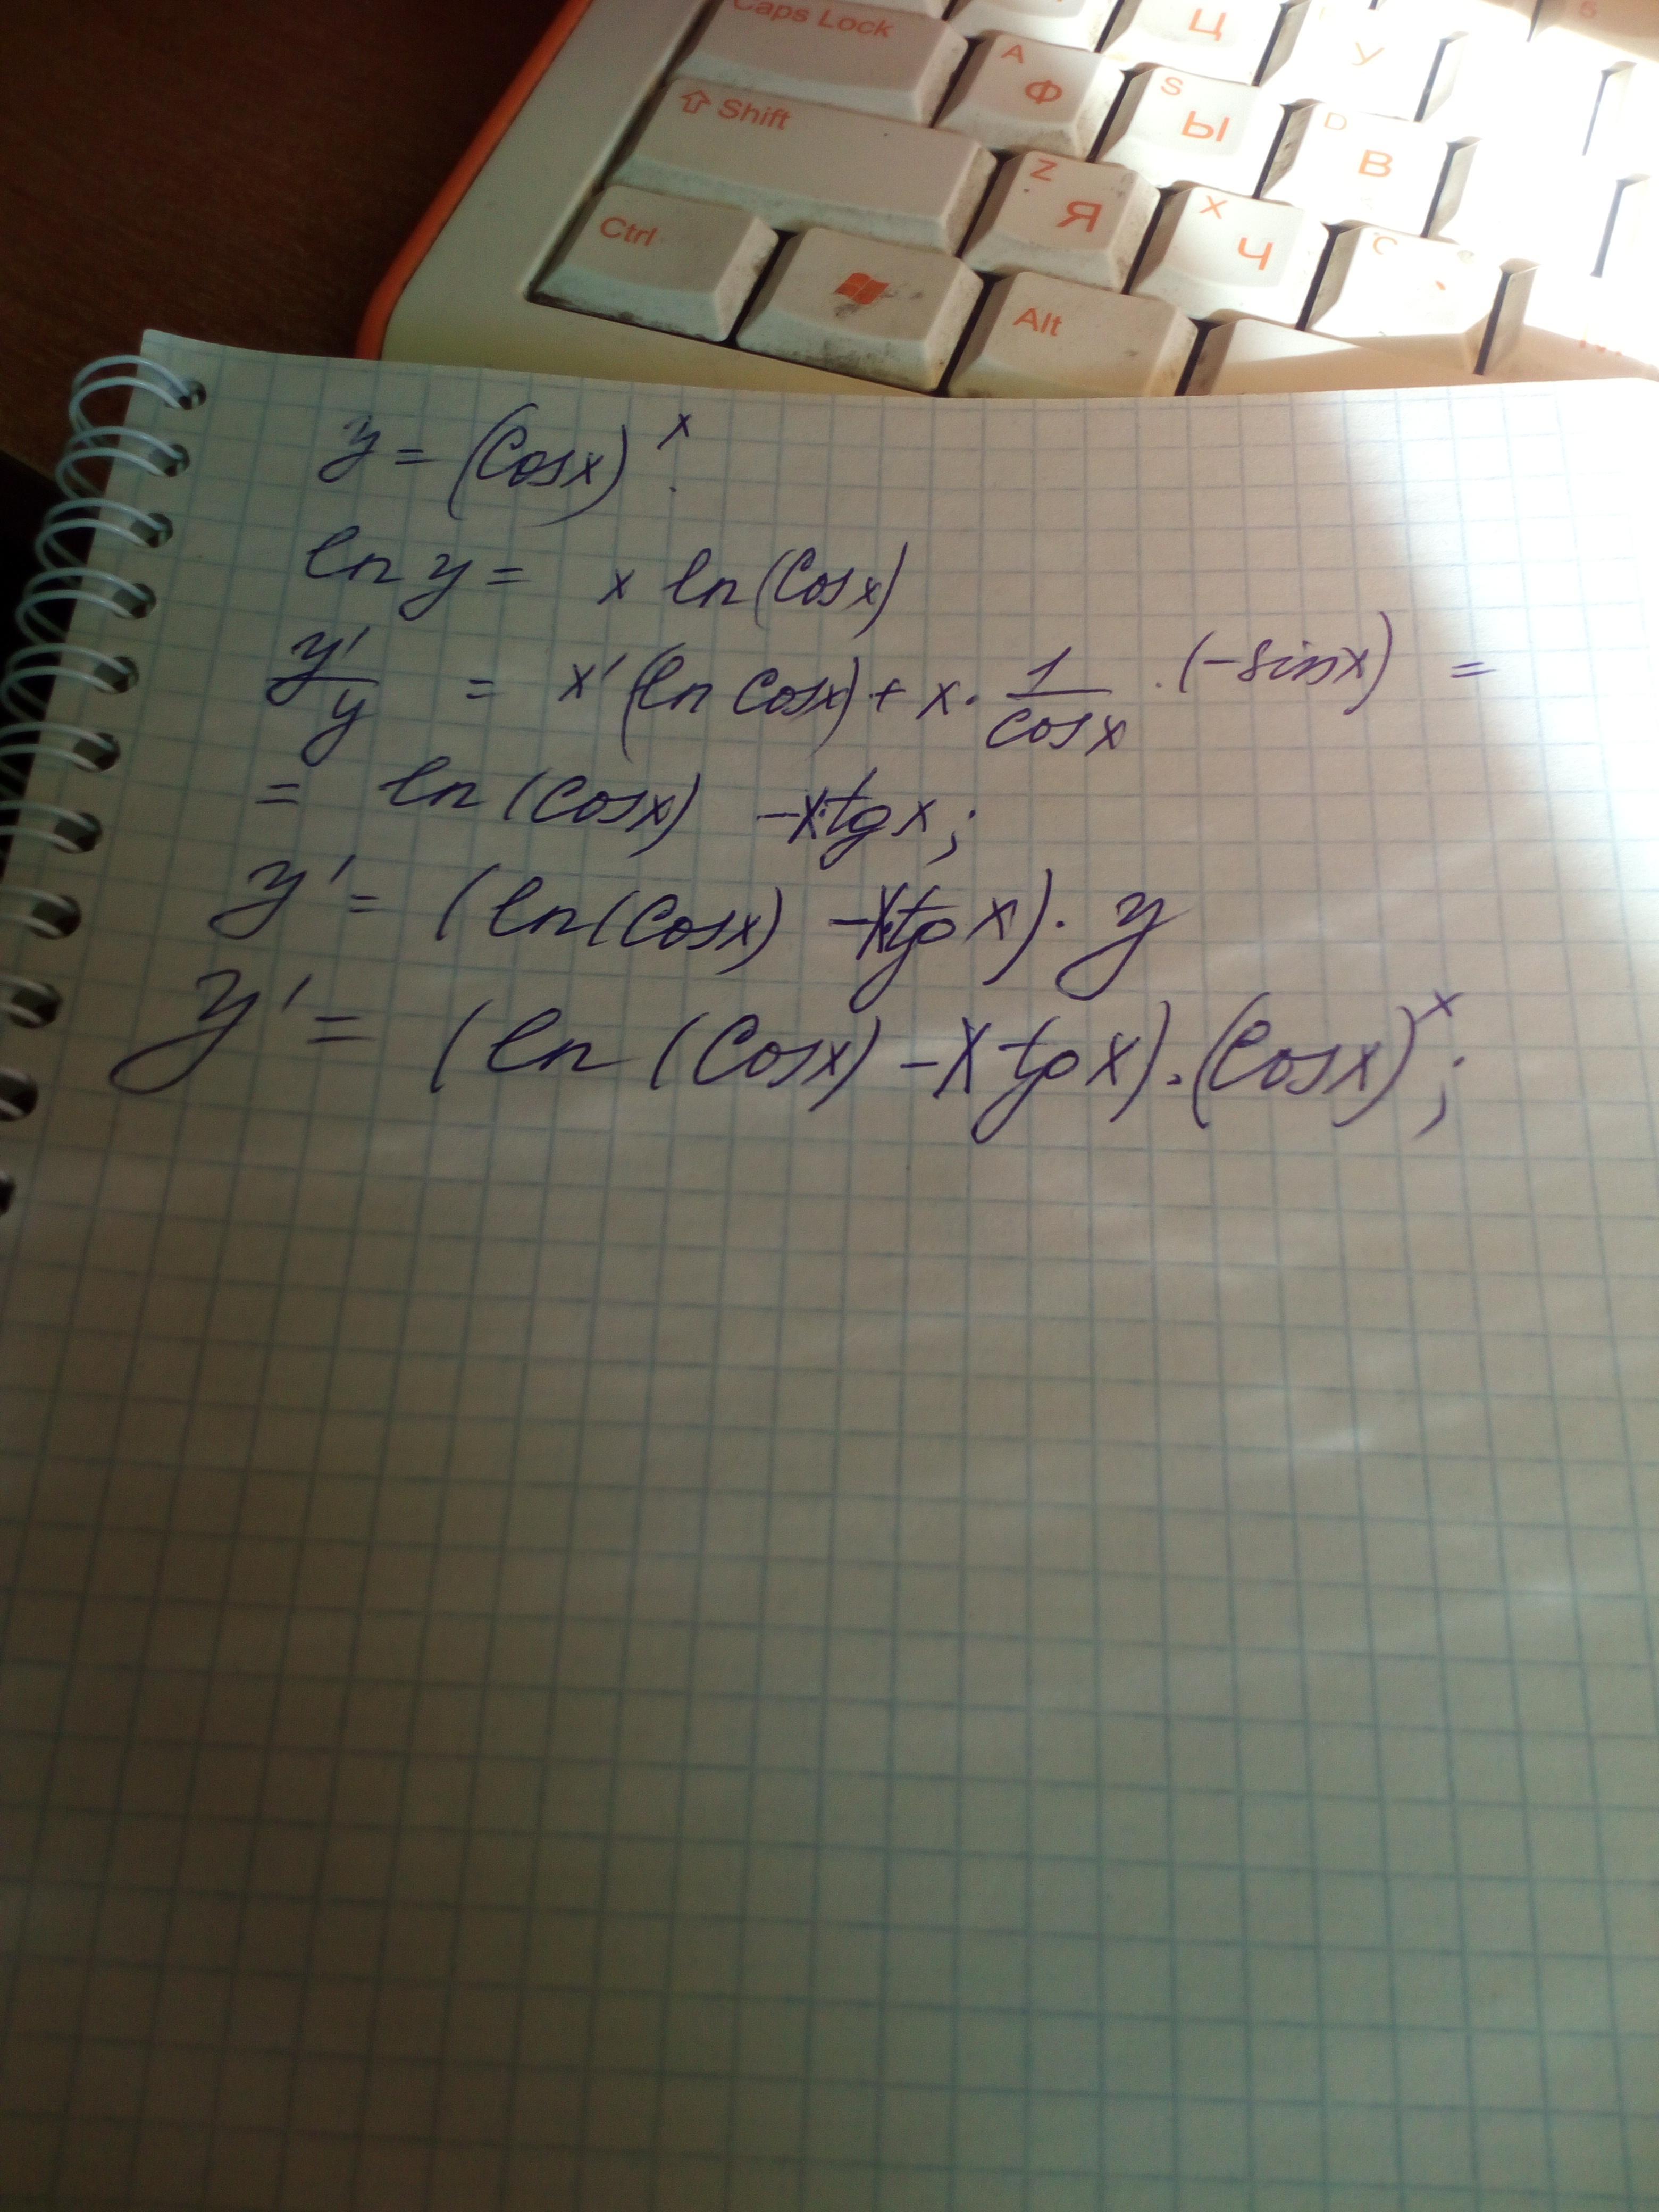 Caps Lock A Ф Ц У 5
⇧ Shift S Ы D В
Ctrl Z Я X Ч C
Alt
y = (cosx)^x
ln y = x ln(cosx)
y'/y = x'(ln cosx) + x · 1/cosx · (-sinx) =
= ln(cosx) - x·tgx;
y' = (ln(cosx) - x·tgx) · y
y' = (ln(cosx) - x tgx) · (cosx)^x;